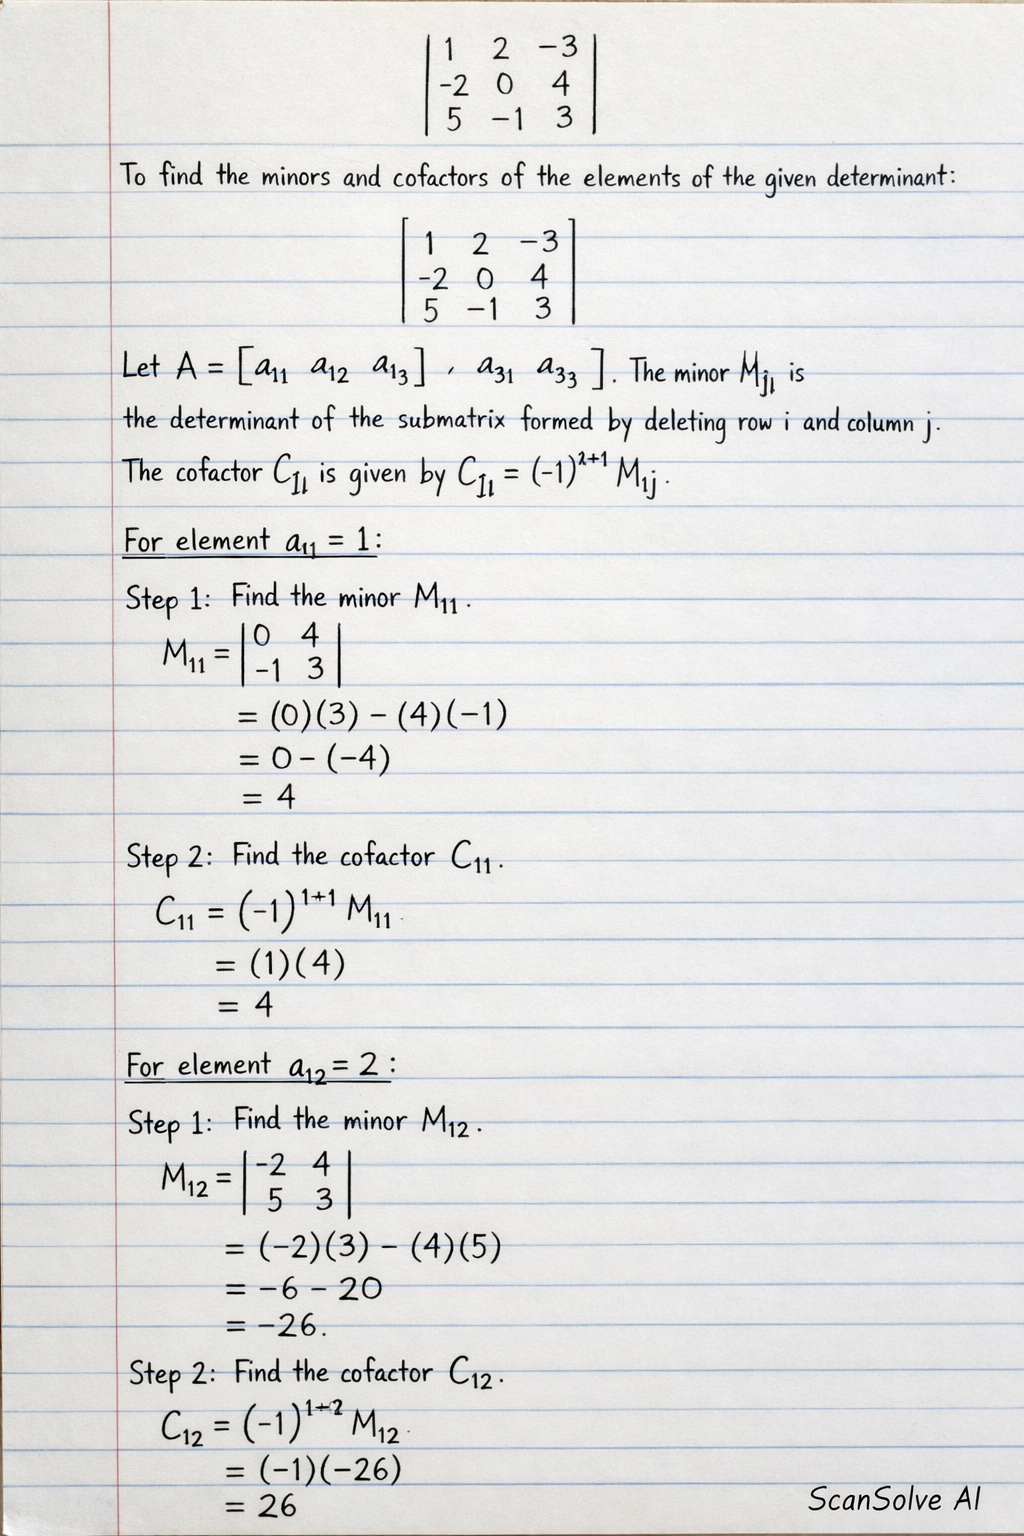 | 1 2 −3 |
| -2 0 4 |
| 5 −1 3 |
To find the minors and cofactors of the elements of the given determinant:
| 1 2 −3 |
| -2 0 4 |
| 5 −1 3 |
Let A = [a₁₁ a₁₂ a₁₃] , a₃₁ a₃₃ ]. The minor Mⱼₗ is
the determinant of the submatrix formed by deleting row i and column j.
The cofactor C_Il is given by C_Il = (−1)²⁺¹ M₁ⱼ.
For element a₁₁ = 1:
Step 1: Find the minor M₁₁.
M₁₁ = | 0 4 |
| −1 3 |
= (0)(3) − (4)(−1)
= 0 − (−4)
= 4
Step 2: Find the cofactor C₁₁.
C₁₁ = (−1)¹⁺¹ M₁₁
= (1)(4)
= 4
For element a₁₂ = 2 :
Step 1: Find the minor M₁₂.
M₁₂ = | -2 4 |
| 5 3 |
= (−2)(3) − (4)(5)
= −6 − 20
= −26.
Step 2: Find the cofactor C₁₂.
C₁₂ = (−1)¹⁺² M₁₂.
= (−1)(−26)
= 26
ScanSolve AI